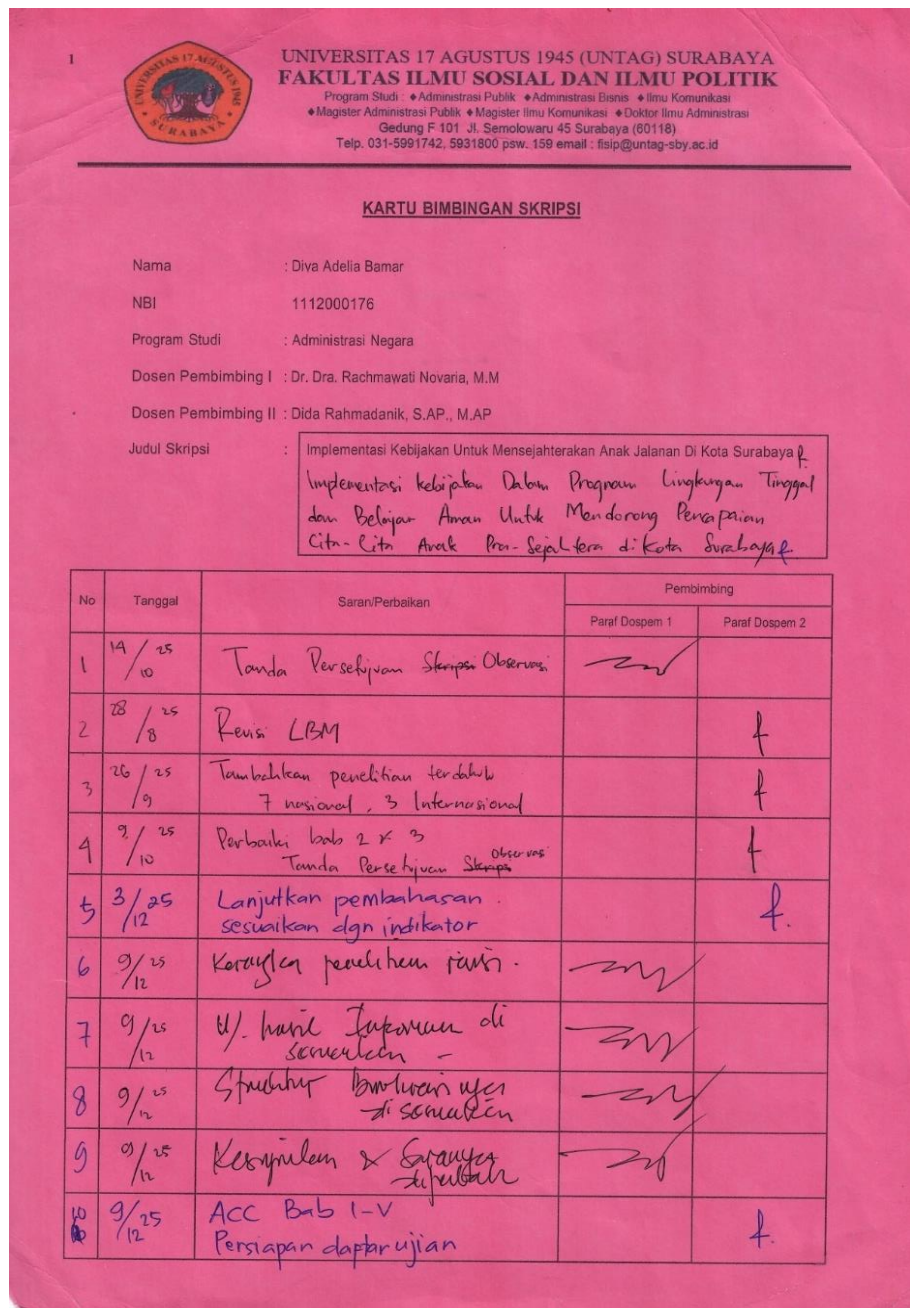 1
UNIVERSITAS 17 AGUSTUS 1945
SURABAYA
UNIVERSITAS 17 AGUSTUS 1945 (UNTAG) SURABAYA
FAKULTAS ILMU SOSIAL DAN ILMU POLITIK
Program Studi : ◆Administrasi Publik ◆Administrasi Bisnis ◆Ilmu Komunikasi
◆Magister Administrasi Publik ◆Magister Ilmu Komunikasi ◆Doktor Ilmu Administrasi
Gedung F 101 Jl. Semolowaru 45 Surabaya (60118)
Telp. 031-5991742, 5931800 psw. 159 email : fisip@untag-sby.ac.id
KARTU BIMBINGAN SKRIPSI
Nama : Diva Adelia Bamar
NBI 1112000176
Program Studi : Administrasi Negara
Dosen Pembimbing I : Dr. Dra. Rachmawati Novaria, M.M
Dosen Pembimbing II : Dida Rahmadanik, S.AP., M.AP
Judul Skripsi : Implementasi Kebijakan Untuk Mensejahterakan Anak Jalanan Di Kota Surabaya
Implementasi kebijakan Dalam Program Lingkungan Tinggal
dan Belajar Aman Untuk Mendorong Pencapaian
Cita-Cita Anak Pra-Sejahtera di Kota Surabaya
No Tanggal Saran/Perbaikan Pembimbing
Paraf Dospem 1 Paraf Dospem 2
1 14/10 25 Tanda Persetujuan Skripsi Observasi
2 28/8 25 Revisi LBM
3 26/9 25 Tambahkan penelitian terdahulu
7 nasional, 3 Internasional
4 9/10 25 Perbaiki bab 2 & 3
Tanda Persetujuan Skripsi Observasi
5 3/12 25 Lanjutkan pembahasan
sesuaikan dgn indikator
6 9/12 25 Kerangka penelitian
7 9/12 25 hasil di
8 9/12 25 Struktur
9 9/12 25 Kesimpulan &
10 9/12 25 ACC Bab I-V
Persiapan daptar ujian